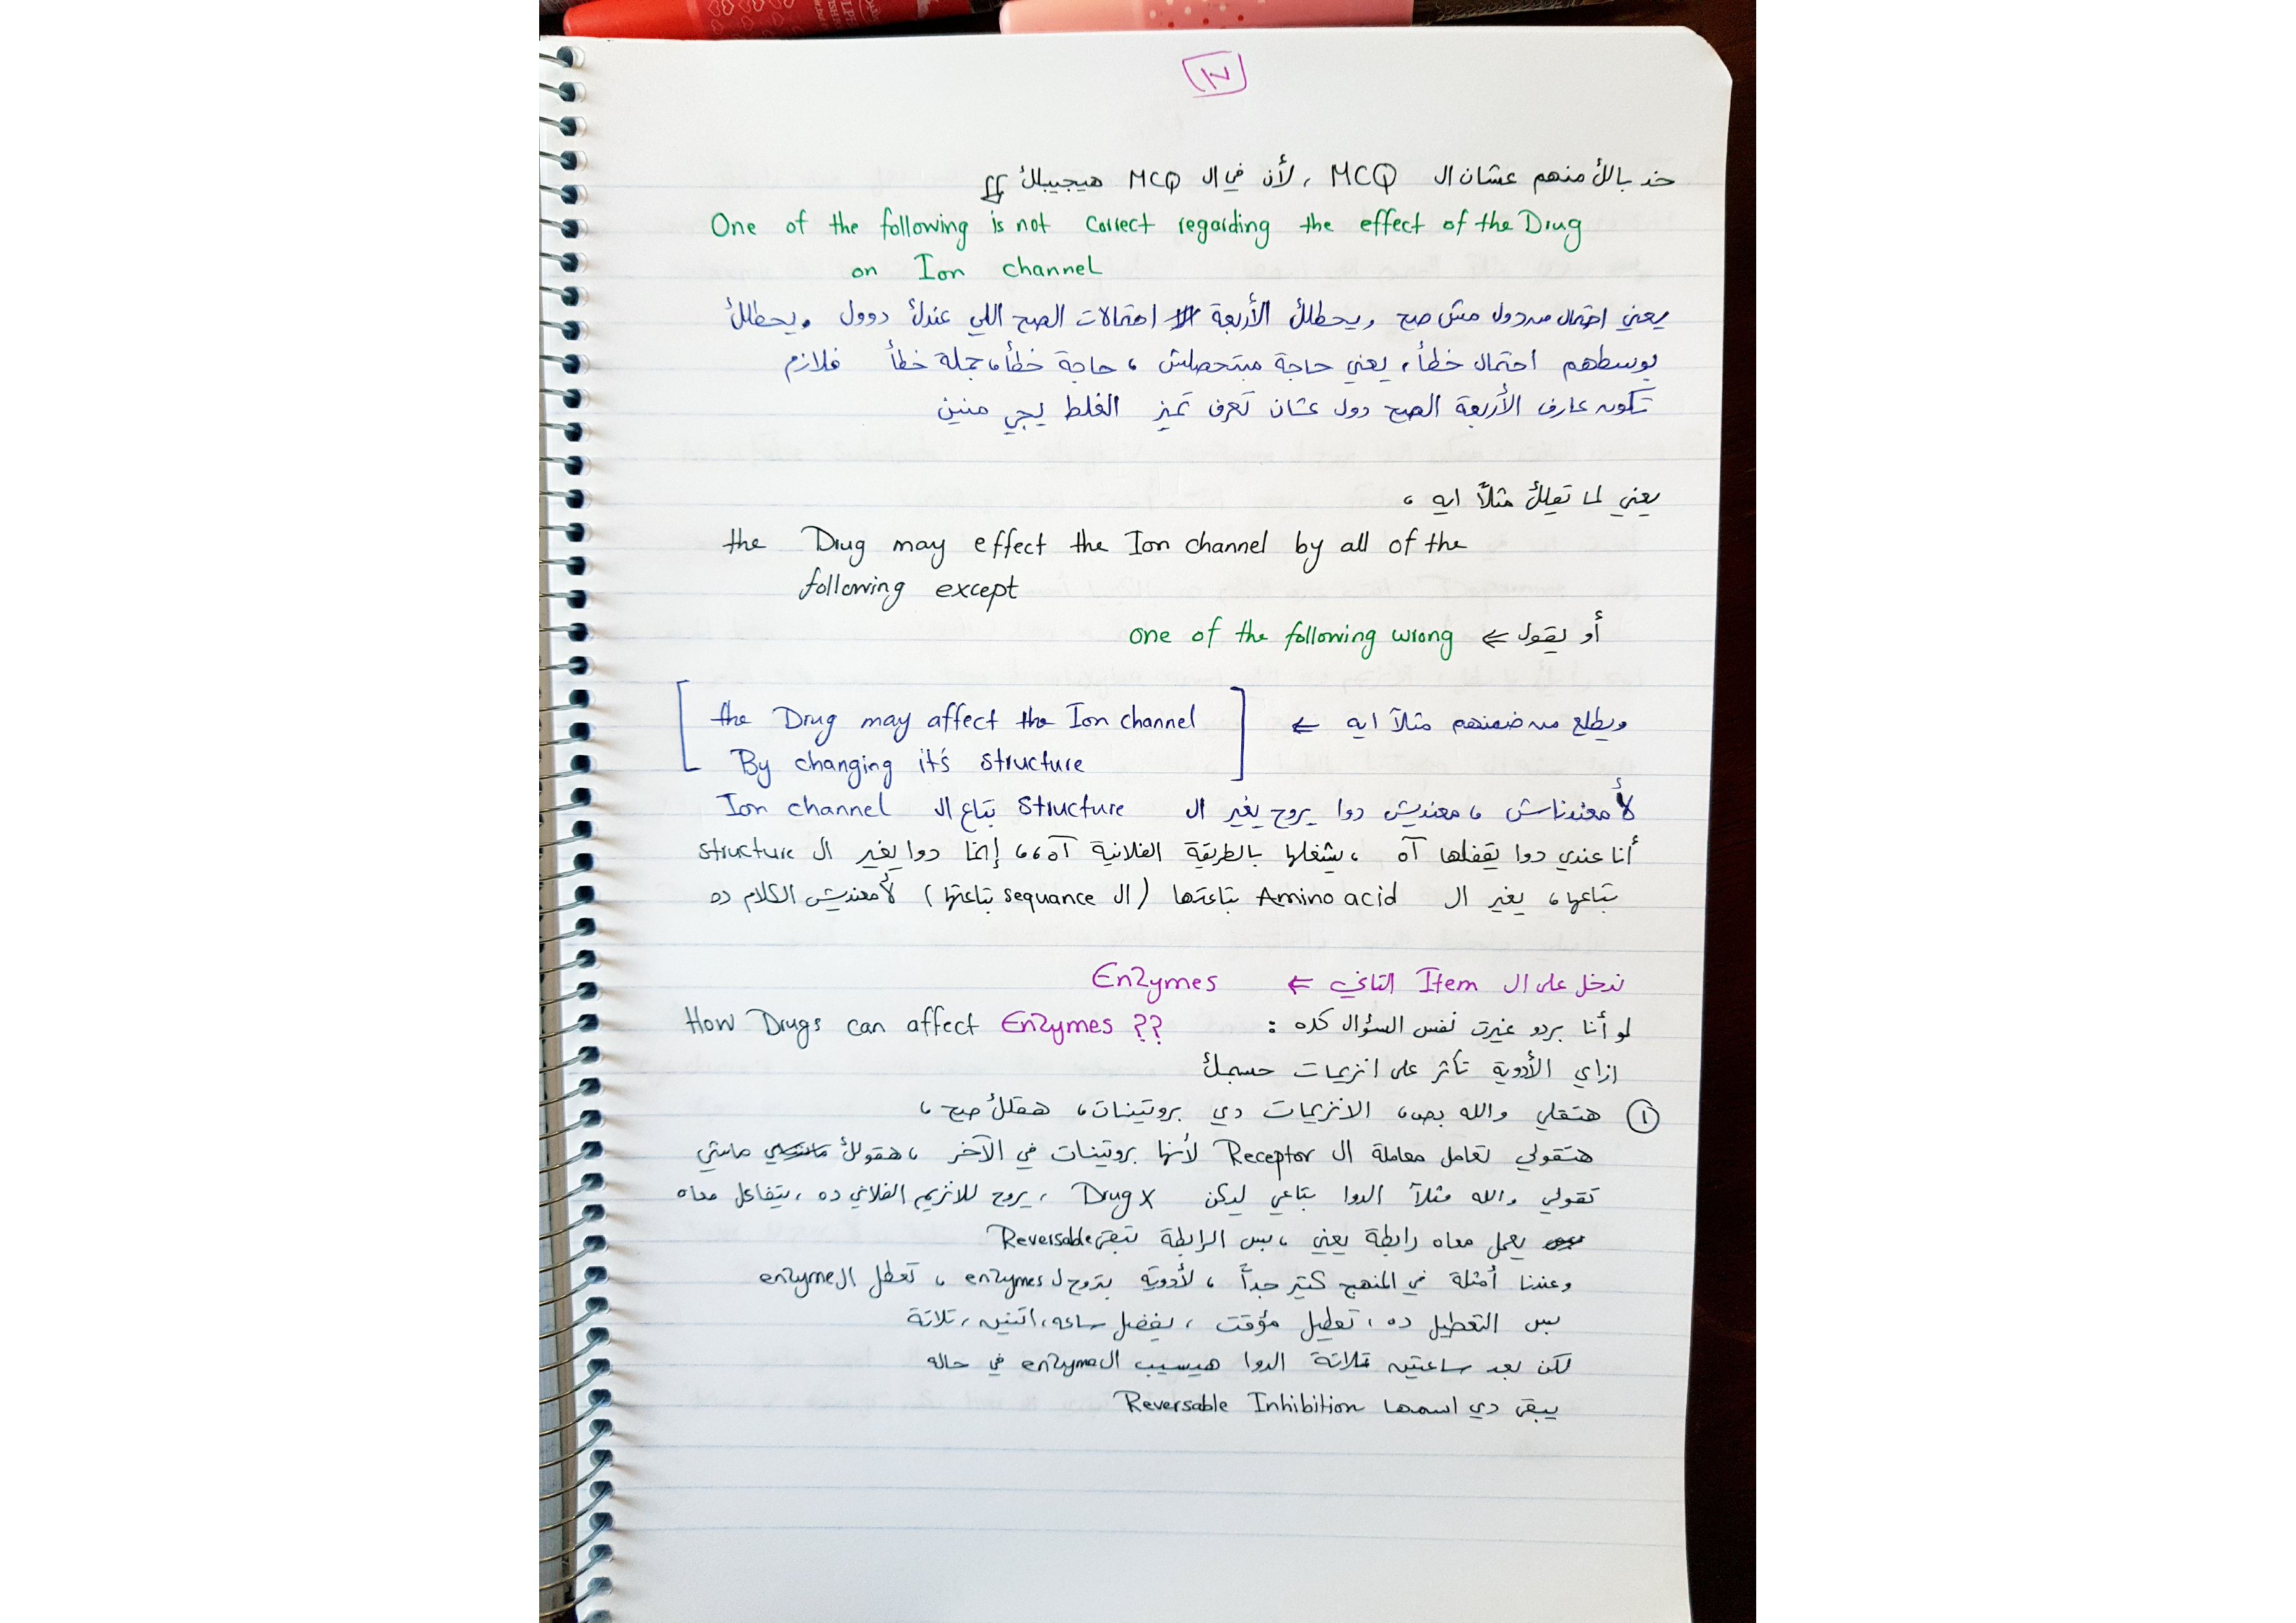 ١٧
خد بالك منهم عشان ال MCQ ، لأن في ال MCQ هيجيبلك
One of the following is not correct regarding the effect of the Drug
on Ion channel
يعني احتمال من دول مش صح ويحطلك الأربعة احتمالات الصح اللي عندك دوول ويحطلك
بوسطهم احتمال خطأ، يعني حاجة مبتحصلش ، حاجة خطأ، جملة خطأ فلازم
تكون عارف الأربعة الصح دول عشان تعرف تميز الغلط يجي منين
يعني لما تقلك مثلاً ايه ،
the Drug may effect the Ion channel by all of the
following except
أو يقول ⇐ one of the following wrong
ويطلع من ضمنهم مثلاً ايه ⇐ [the Drug may affect the Ion channel
By changing it's structure]
لأ معندناش ، معنديش دوا يروح يغير ال structure بتاع ال Ion channel
أنا عندي دوا يقفلها آه ، يشغلها بالطريقة الفلانية آه،، إنما دوا يغير ال structure
بتاعها، يغير ال Amino acid بتاعتها (ال sequance بتاعتها) لأ معنديش الكلام ده
ندخل على ال Item التاني ⇐ Enzymes
لو أنا بردو غيرت نفس السؤال كده : How Drugs can affect Enzymes ??
ازاي الأدوية تأثر على انزيمات جسمك
① هتقلي والله بص، الانزيمات دي بروتينات، هقلك صح ،
هتقولي تعامل معاملة ال Receptor لأنها بروتينات في الآخر ، هقولك ماشي
تقولي والله مثلاً الدوا بتاعي ليكن Drug X ، يروح للانزيم الفلاني ده ، يتفاعل معاه
يعمل معاه رابطة يعني ، بس الرابطة تبقى Reversable
وعندنا أمثلة في المنهج كتير جداً ، لأدوية بتروح ل enzymes ، تعطل ال enzyme
بس التعطيل ده ، تعطيل مؤقت ، يفضل ساعه، اتنين، تلاتة
لكن بعد ساعتين تلاتة الدوا هيسيب ال enzyme في حاله
يبقى دي اسمها Reversable Inhibition